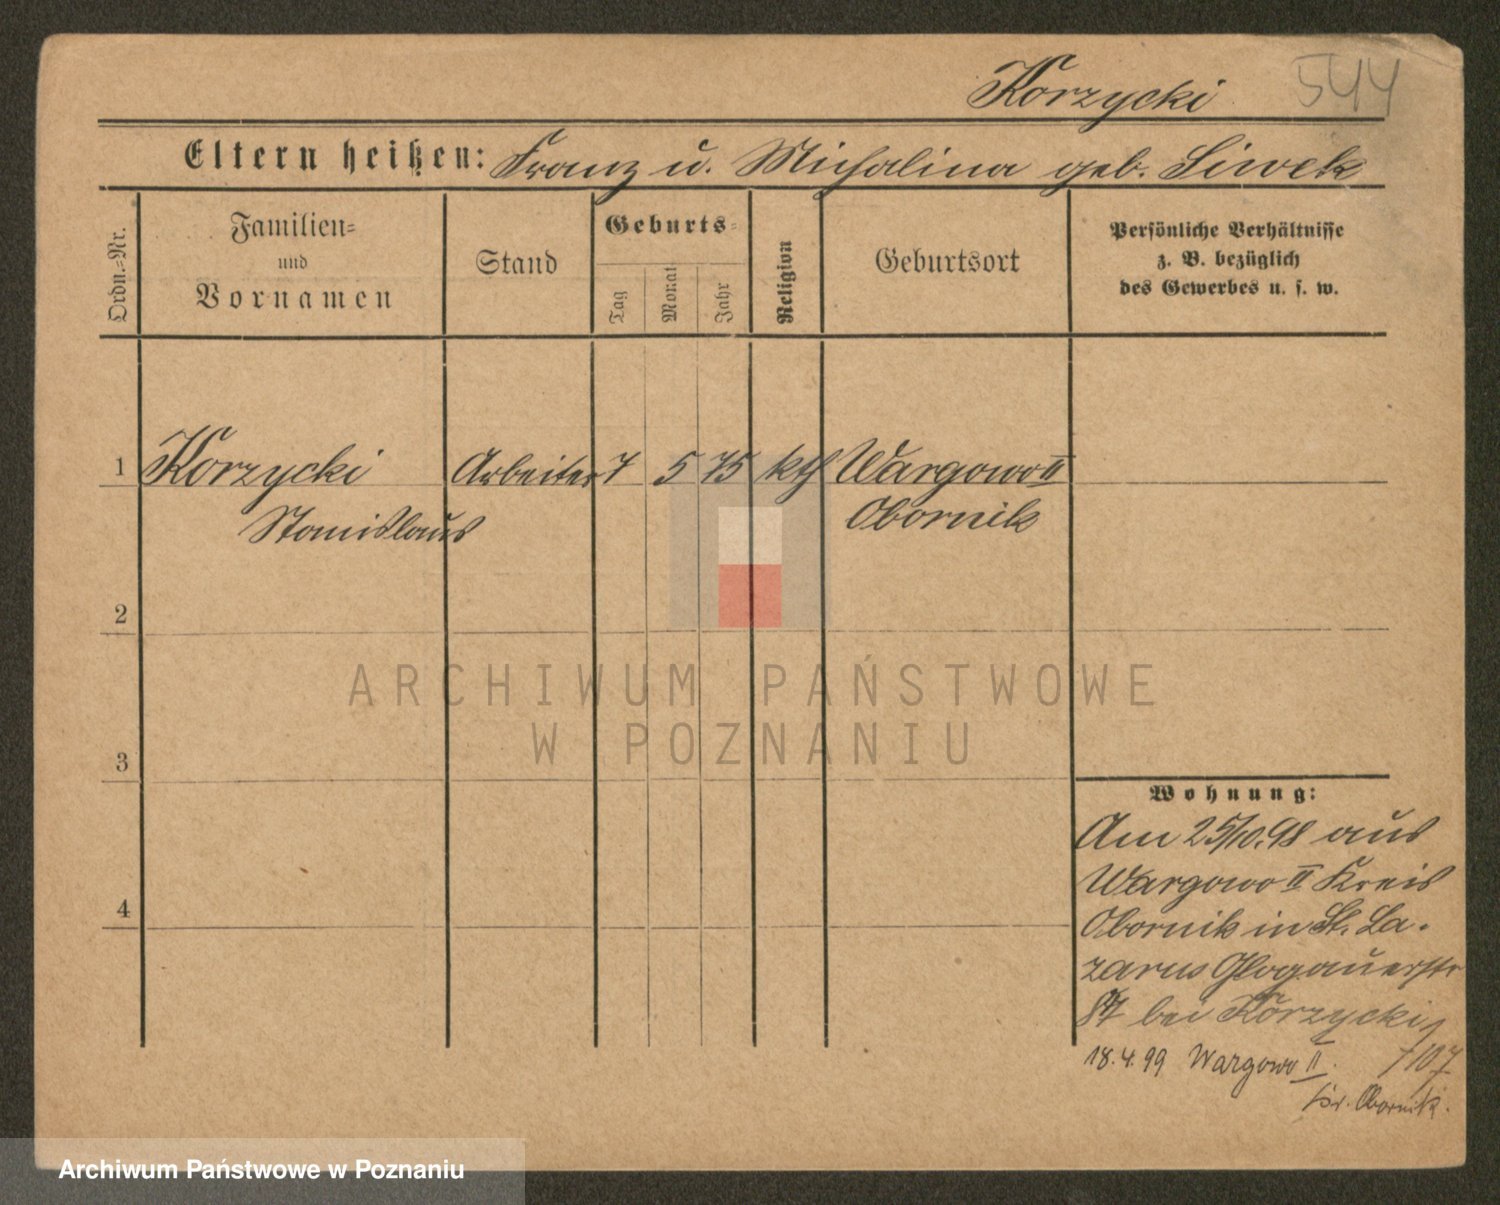 Korzycki 544
Eltern heißen: Franz u. Michalina geb. Siwek
Ordn.-Nr.
Familien- und Vornamen
Stand
Geburts-
Tag
Monat
Jahr
Religion
Geburtsort
Persönliche Verhältnisse
z. B. bezüglich
des Gewerbes u. s. w.
1 Korzycki Arbeiter 7 5 75 kth Wargowo II
Stanislaus Obornik
2
3
4
ARCHIWUM PAŃSTWOWE
W POZNANIU
Wohnung:
Am 25/10.98 aus
Wargowo II Kreis
Obornik in St. La-
zarus Glogauerstr
bei Korzycki
18.4.99 Wargowo II. /107
Kr. Obornik.
Archiwum Państwowe w Poznaniu